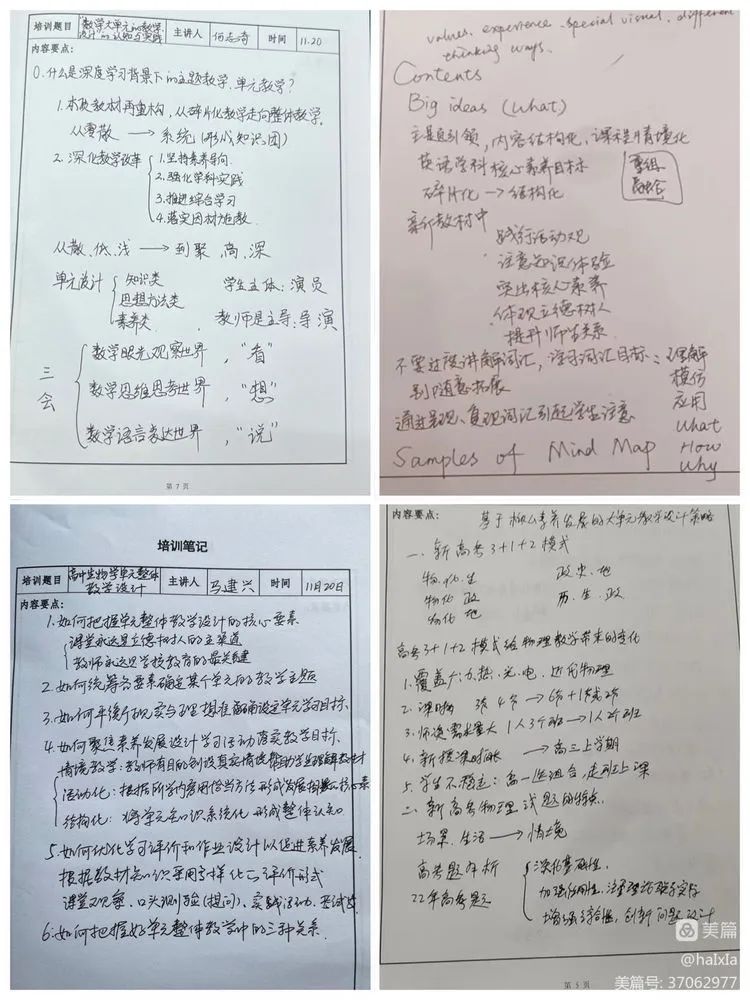 培训题目 数学大单元的教学设计的认知与实践 主讲人 何志奇 时间 11.20
内容要点:
0.什么是深度学习背景下的主题教学、单元教学?
1.本质教材再重构,从碎片化教学走向整体教学,
从零散 → 系统(形成知识团)
2.深化教学改革 1.坚持素养导向
2.强化学科实践
3.推进综合学习
4.落实因材施教.
从散、低、浅 → 到聚、高、深
单元设计 知识类 学生主体:演员
思想方法类
素养类 教师是主导:导演
三会 数学眼光观察世界,“看”
数学思维思考世界,“想”
数学语言表达世界,“说”
第 7 页
values. experience. special visual. different
thinking ways.
Contents
Big ideas (what)
主题引领,内容结构化,课程情境化
英语学科核心素养目标
碎片化 → 结构化
重组
融合
新教材中
践行活动观
注意知识体验
突出核心素养
体现立德树人
提升师生关系
不要过度讲解词汇,学习词汇目标:理解
别随意拓展 模仿
应用
通过呈现、复现词汇引起学生注意 what
Samples of Mind Map How
Why
培训笔记
培训题目 高中生物学单元整体教学设计 主讲人 马建兴 时间 11月20日
内容要点:
1.如何把握单元整体教学设计的核心要素
课堂永远是立德树人的主渠道
教师永远是学校教育的最关键
2.如何统筹各要素确定某个单元的教学主题
3.如何平衡现实与理想准确设定单元学习目标.
4.如何聚焦素养发展设计学习活动落实教学目标.
情境教学:教师有目的创设真实情境帮助学生理解教材
活动化:根据所学内容用恰当方法形成发展相应核心素
结构化:将单元知识系统化 形成整体认知
5.如何优化学习评价和作业设计以促进素养发展
根据教材知识采用多样化评价形式
课堂观察.口头测验(提问)、实践活动.
6.如何把握好单元整体教学中的三种关系.
内容要点: 基于核心素养发展的大单元教学设计策略
一、新高考3+1+2模式
物.化.生 政.史.地
物化 政 历.生.政
物化 地
高考3+1+2模式给物理教学带来的变化
1.覆盖广:力.热.光.电.近代物理
2.课时
3.师资需求量大 1人3个班→1人2个班
4.新授课时间长 → 高三上学期
5.学生不稳定:高一选组合,走班上课
二、新高考物理试题的特点.
场景.生活 → 情境
高考题分析 深化基础性,
22年高考题 加强应用性,注重理论联系实际
增强综合性,创新问题设计
第 5 页
美篇
@haIxIa
美篇号: 37062977